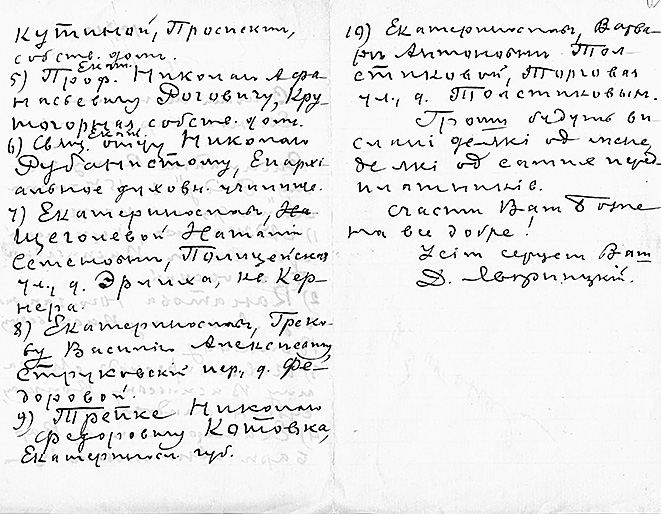 кутиной, Проспект,
собств. дом.
5) Проф. Екат. Николаю Афа-
насьевичу Роговичу, Кру-
тогорная собств. дом.
6) Свящ. Екат. отцу Николаю
Рубанистому, Епархі-
альное духовн. училище.
7) Екатеринославъ, На
Щеголевой Наталіи
Семеновни, Полицейская
ул., д. Эрлиха, кв. Кер-
нера.
8) Екатеринославъ, Греко-
ву Василію Алексеевичу
Струковскій пер., д. Фе-
доровой.
9) Трейке Николаю
Федоровичу Котовка,
Екатериносл. губ.
10) Екатеринославъ, Варва-
ри Антоновни Тол-
стиковой, Торговая
ул., д. Толстиковым.
Гроши будуть ви-
слані деякі од мене
деякі од самих перед-
платників.
Счасти Вам Боже
на все добре!
Усім серцем Ваш
Д. Яворницкій.